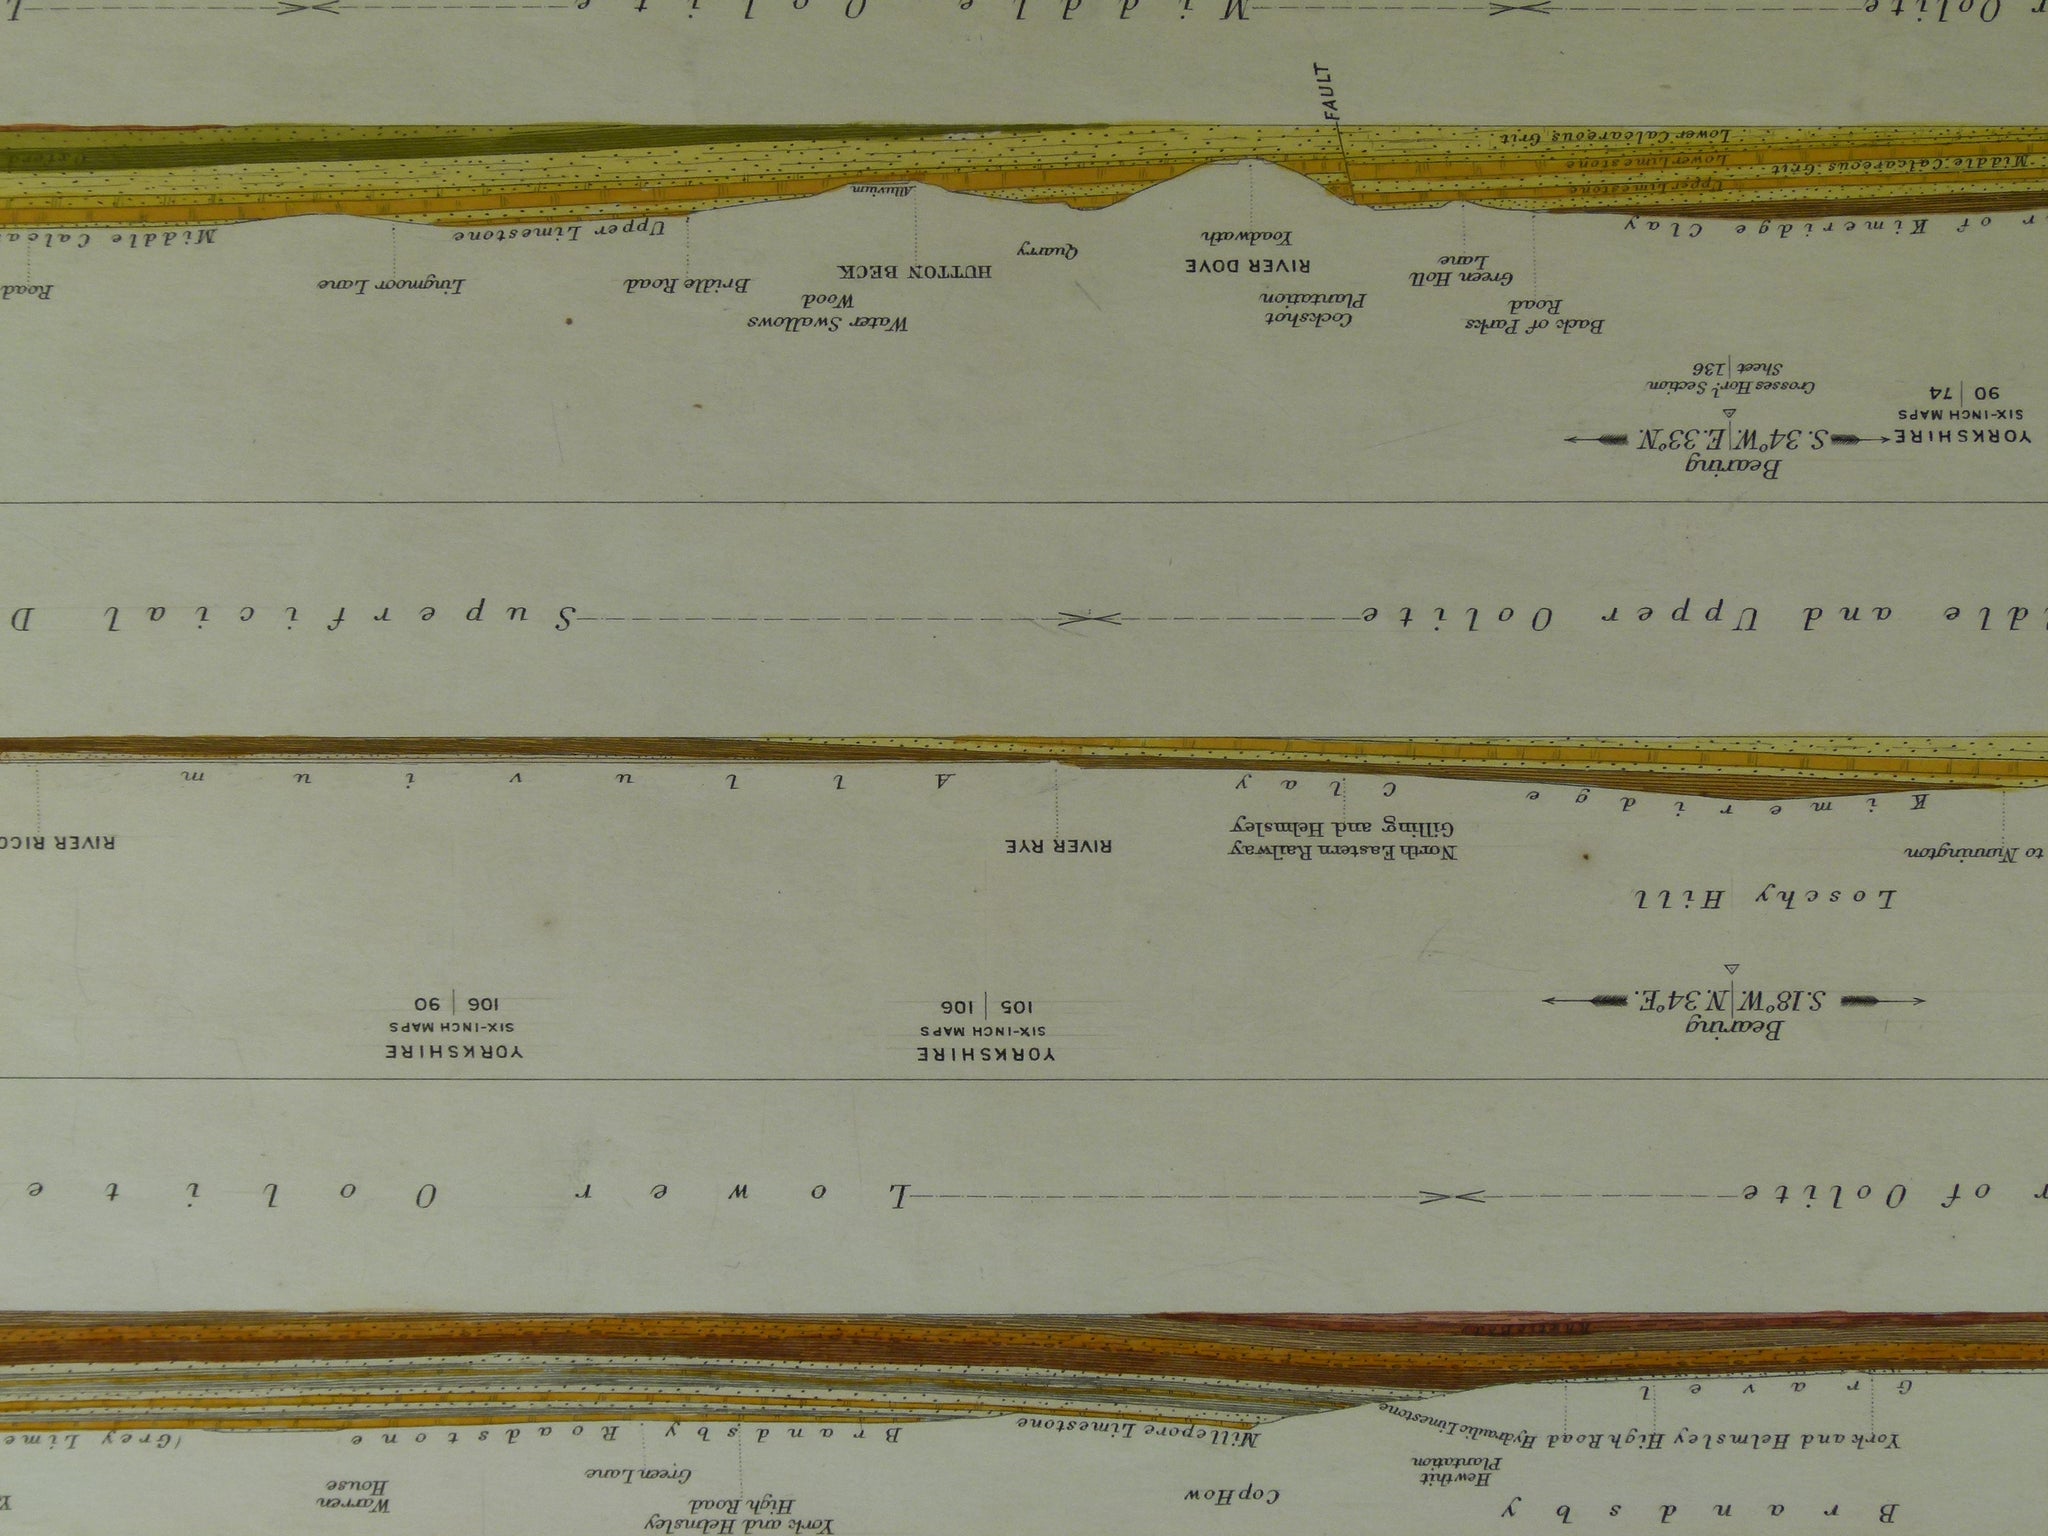 Brandsby
York and Helmsley
High Road
Warren
House
Cop How
Hewthit
Plantation
Green Lane
York and Helmsley High Road
Hydraulic Limestone
Millepore Limestone
Brandsby Roadstone
(Grey Lime
Gravel
r of Oolite
Lower Oolite
YORKSHIRE
SIX-INCH MAPS
105 | 106
YORKSHIRE
SIX-INCH MAPS
106 | 90
Bearing
S.18°W. N.34°E.
Loschy Hill
to Nunnington
North Eastern Railway
Gilling and Helmsley
RIVER RYE
RIVER RICC
Kimeridge Clay
Alluvium
dle and Upper Oolite
Superficial D
Bearing
S.34°W. E.33°N.
YORKSHIRE
SIX-INCH MAPS
90 | 74
Crosses Horl. Section
Sheet 136
Back of Parks
Road
Green Holl
Lane
Cockshot
Plantation
RIVER DOVE
Yoadwath
Quarry
Water Swallows
Wood
HUTTON BECK
Bridle Road
Lingmoor Lane
Road
r of Kimeridge Clay
Upper Limestone
Middle Calca
Alluvium
Upper Limestone
Middle Calcareous Grit
Lower Limestone
Lower Calcareous Grit
FAULT
r Oolite
Middle Oolite
L